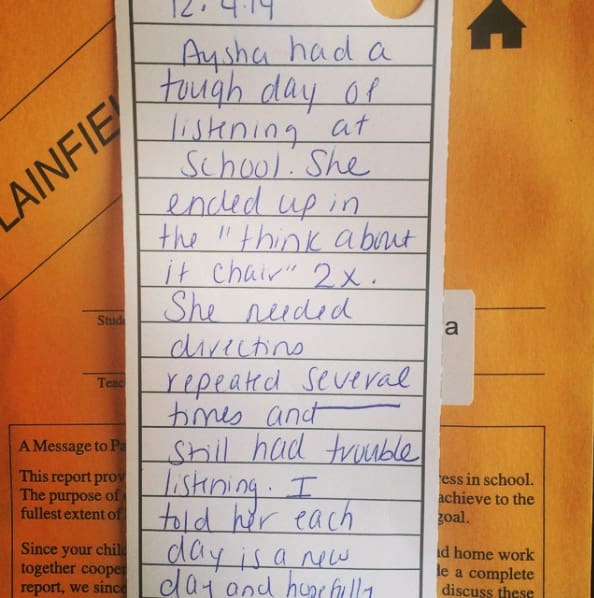 12.4.14
Aysha had a
tough day of
listening at
School. She
ended up in
the "think about
it chair" 2x.
She needed
directins
repeated several
times and
still had trouble
listening. I
told her each
day is a new
day and hopefully
LAINFIE
Stud
Teac
a
A Message to Pa
This report prov
The purpose of
fullest extent of
Since your chil
together cooper
report, we since
ess in school.
achieve to the
goal.
d home work
le a complete
discuss these